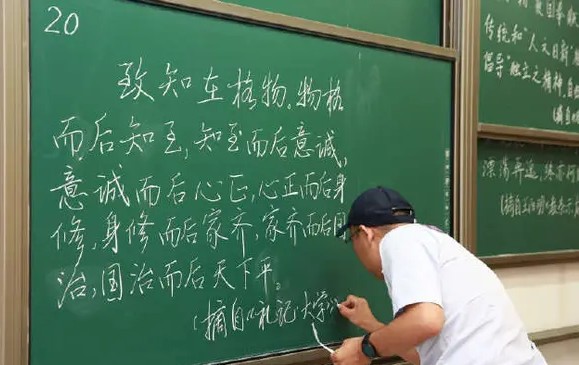 20
致知在格物。物格
而后知至,知至而后意诚,
意诚而后心正,心正而后身
修,身修而后家齐,家齐而后国
治,国治而后天下平。
(摘自《礼记·大学》
传统和"人文日新"
倡导"独立之精神,自由
(摘自
(摘自